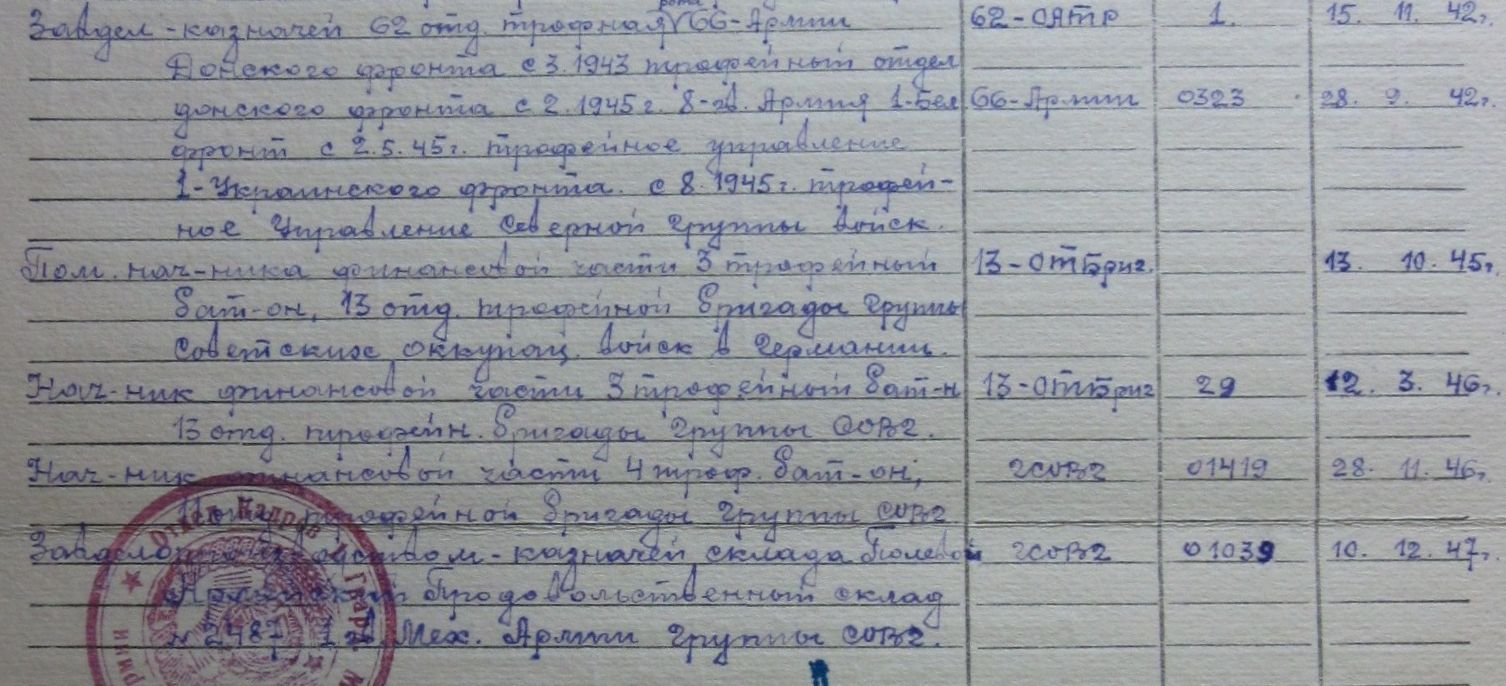 рота
Завдел-казначей 62 отд. трофная 66-Армии 62-ОАТР 1. 15. 11. 42г.
Донского фронта с 3.1943 трофейный отдел
донского фронта с 2.1945г. 8-гв. Армия 1-Бел 66-Армии 0323 28. 9. 42г.
фронт с 2.5.45г. трофейное управление
1-Украинского фронта. с 8.1945г. трофей-
ное Управление Северной Группы Войск.
Пом. нач-ника финансовой части 3 трофейный 13-ОТБриг. 13. 10. 45г.
бат-он, 13 отд. трофейной бригады Группы
Советских оккупац. войск в Германии.
Нач-ник финансовой части 3 трофейный бат-н 13-ОТБриг 29 12. 3. 46г.
13 отд. трофейн. бригады Группы СОВГ.
Нач-ник финансовой части 4 троф. бат-он, ГСОВГ 01419 28. 11. 46г.
трофейной бригады Группы СОВГ
казначей склада Полевой ГСОВГ 01039 10. 12. 47г.
Армейский Продовольственный склад
№ 2487 Мех. Армии Группы СОВГ.
Отдел Кадров